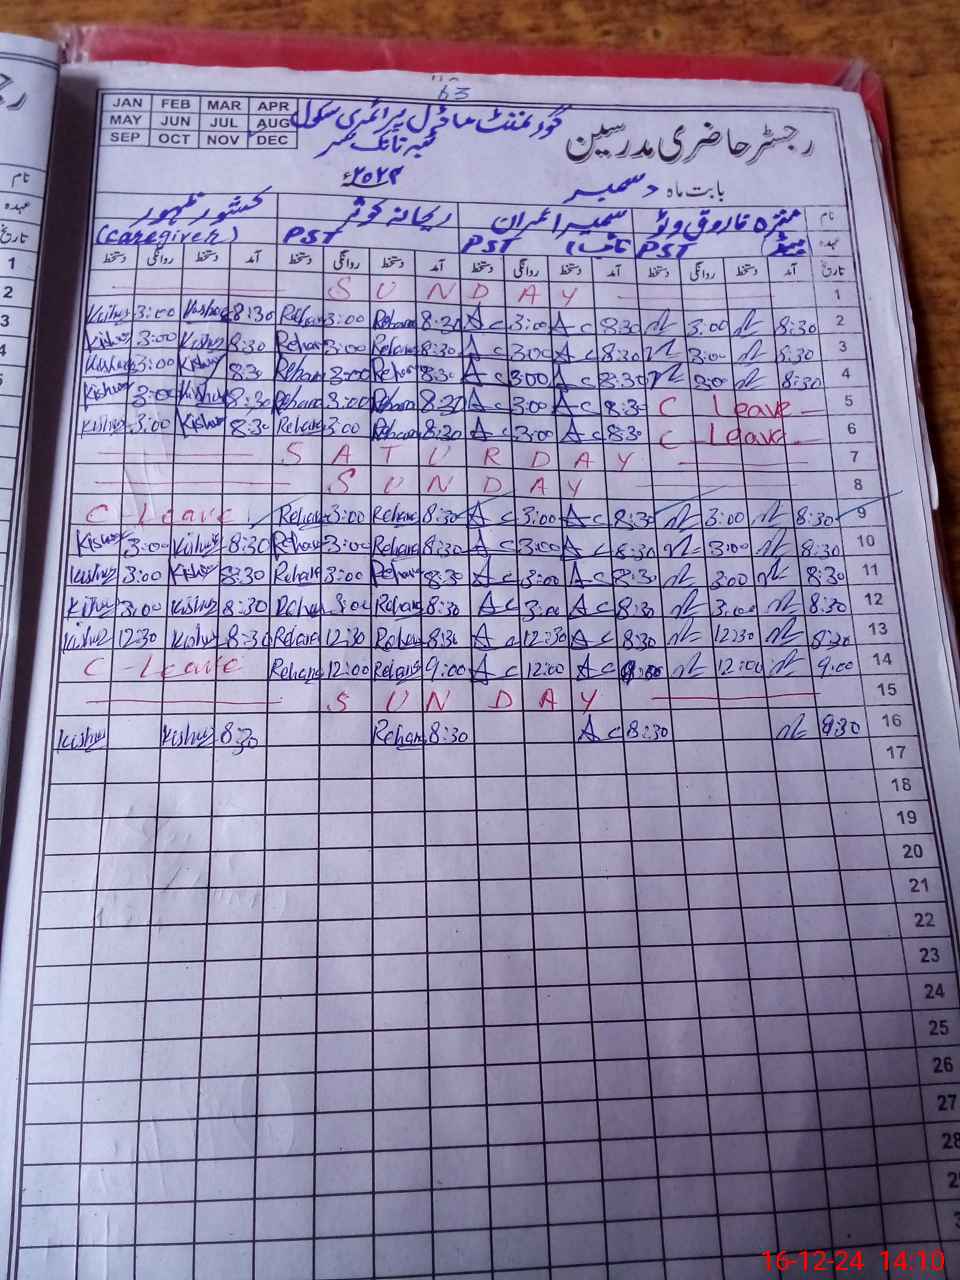 63
JAN FEB MAR APR
MAY JUN JUL AUG
SEP OCT NOV DEC
گورنمنٹ ماڈل پرائمری سکول
رجسٹر حاضری مدرسین
بابت ماہ دسمبر ۲۰۲۴ء
نام فاروق سمیرا عمران ریحانہ کوثر کشور ظہور
عہدہ PST PST PST (caregiver)
تاریخ آمد دستخط روانگی دستخط آمد دستخط روانگی دستخط آمد دستخط روانگی دستخط آمد دستخط روانگی دستخط
SUNDAY 1
Kishwr 3:00 Kishwr 8:30 Rehana 3:00 Rehana 8:30 Ac 3:00 Ac 8:30 3:00 8:30 2
Kishwr 3:00 Kishwr 8:30 Rehana 3:00 Rehana 8:30 Ac 3:00 Ac 8:30 3:00 8:30 3
Kishwr 3:00 Kishwr 8:30 Rehana 3:00 Rehana 8:30 Ac 3:00 Ac 8:30 3:00 8:30 4
Kishwr 3:00 Kishwr 8:30 Rehana 3:00 Rehana 8:30 Ac 3:00 Ac 8:30 C Leave 5
Kishwr 3:00 Kishwr 8:30 Rehana 3:00 Rehana 8:30 Ac 3:00 Ac 8:30 C Leave 6
SATURDAY 7
SUNDAY 8
C Leave Rehana 3:00 Rehana 8:30 Ac 3:00 Ac 8:30 3:00 8:30 9
Kishwr 3:00 Kishwr 8:30 Rehana 3:00 Rehana 8:30 Ac 3:00 Ac 8:30 3:00 8:30 10
Kishwr 3:00 Kishwr 8:30 Rehana 3:00 Rehana 8:30 Ac 3:00 Ac 8:30 3:00 8:30 11
Kishwr 3:00 Kishwr 8:30 Rehana 3:00 Rehana 8:30 Ac 3:00 Ac 8:30 3:00 8:30 12
Kishwr 12:30 Kishwr 8:30 Rehana 12:30 Rehana 8:30 Ac 12:30 Ac 8:30 12:30 8:30 13
C-Leave Rehana 12:00 Rehana 9:00 Ac 12:00 Ac 12:00 9:00 14
SUNDAY 15
Kishwr Kishwr 8:30 Rehana 8:30 Ac 8:30 8:30 16
17
18
19
20
21
22
23
24
25
26
27
28
16-12-24 14:10